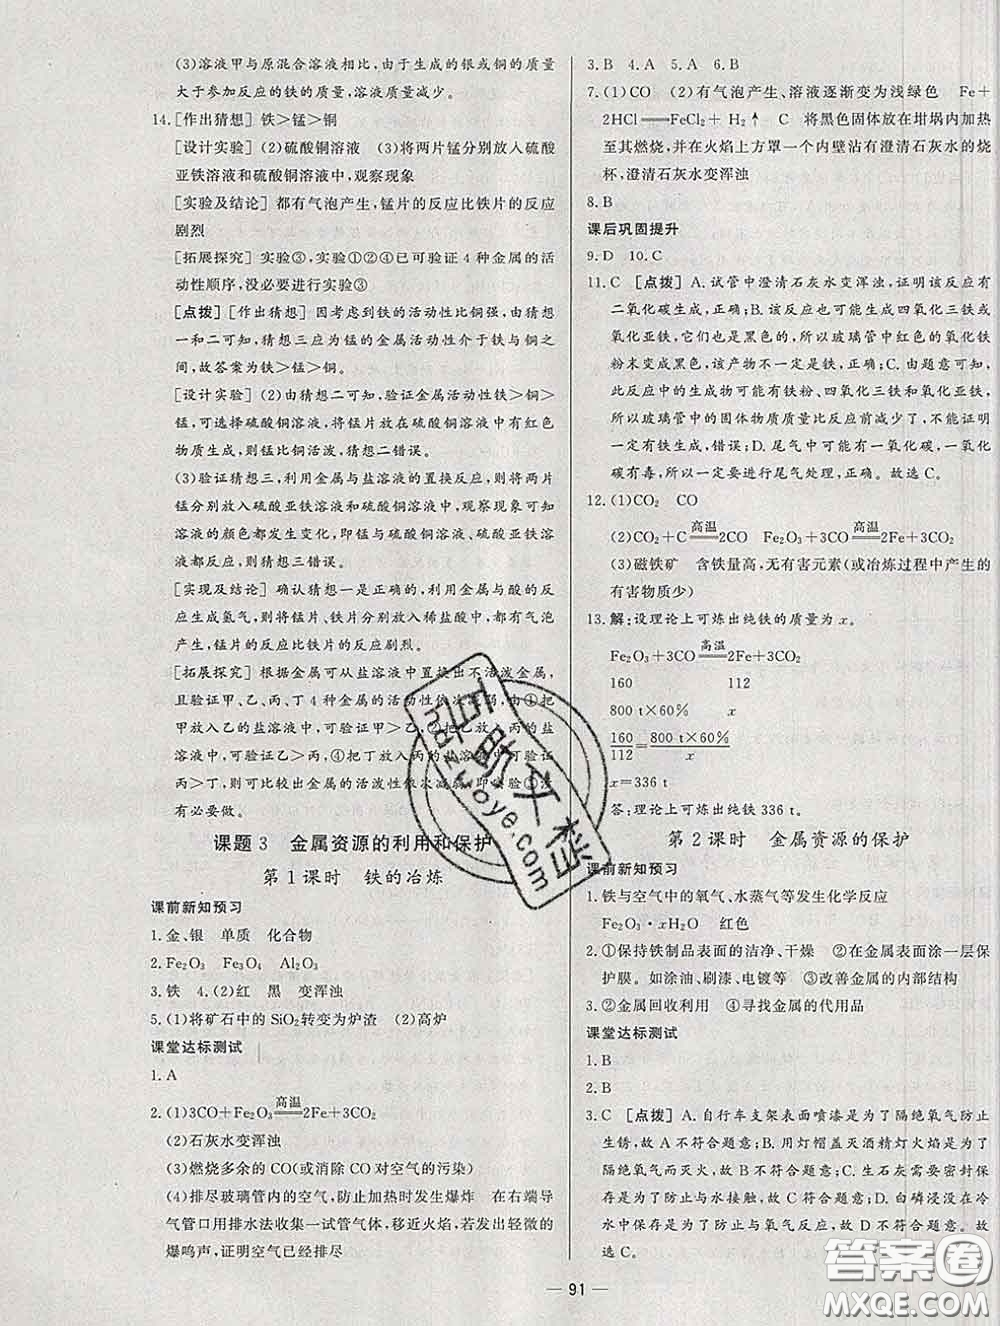 (3)溶液甲与原混合溶液相比,由于生成的银或铜的质量
大于参加反应的铁的质量,溶液质量减少。
14.[作出猜想] 铁>锰>铜
[设计实验] (2)硫酸铜溶液 (3)将两片锰分别放入硫酸
亚铁溶液和硫酸铜溶液中,观察现象
[实验及结论] 都有气泡产生,锰片的反应比铁片的反应
剧烈
[拓展探究] 实验③,实验①②④已可验证 4 种金属的活
动性顺序,没必要进行实验③
[点拨] [作出猜想] 因考虑到铁的活动性比铜强,由猜想
一和二可知,猜想三应为锰的金属活动性介于铁与铜之
间,故答案为铁>锰>铜。
[设计实验] (2)由猜想二可知,验证金属活动性铁>铜>
锰,可选硫酸铜溶液,将锰片放入硫酸铜溶液中有红色
物质生成,则锰比铜活泼,猜想二错误。
(3)验证猜想三,利用金属与盐溶液的置换反应,将两片
锰分别放入硫酸亚铁溶液和硫酸铜溶液中,观察现象可知
溶液的颜色都发生变化,即锰与硫酸铜溶液、硫酸亚铁溶
液都反应,则猜想三错误。
[实现及结论] 确认猜想一是正确的,利用金属与酸的反
应生成氢气,则将锰片、铁片分别放入稀盐酸中,都有气
泡产生,锰片的反应比铁片的反应剧烈。
[拓展探究] 根据金属可从盐溶液中置换出不活泼金属,
且验证甲、乙、丙、丁 4 种金属的活动性依次减弱,由①把
甲放入乙的盐溶液中,可验证甲>乙,②把乙放入丙的盐
溶液中,可验证乙>丙,④把丁放入丙的盐溶液中,可验
证丙>丁,则可比较出金属的活泼性依次减弱,即实验③没
有必要做。
课题 3 金属资源的利用和保护
第 1 课时 铁的冶炼
课前新知预习
1.金、银 单质 化合物
2.Fe₂O₃ Fe₃O₄ Al₂O₃
3.铁 4.(2)红 黑 变浑浊
5.(1)将矿石中的 SiO₂转变为炉渣 (2)高炉
课堂达标测试
1.A
2.(1)3CO+Fe₂O₃ 高温 2Fe+3CO₂
(2)石灰水变浑浊
(3)燃烧多余的 CO(或消除 CO 对空气的污染)
(4)排尽玻璃管内的空气,防止加热时发生爆炸 在右端导
气管口用排水法收集一试管气体,移近火焰,若发出轻微的
爆鸣声,证明空气已经排尽
3.B 4.A 5.A 6.B
7.(1)CO (2)有气泡产生、溶液逐渐变为浅绿色 Fe+
2HCl══FeCl₂+H₂↑ C 将黑色固体放在坩埚内加热
至其燃烧,并在火焰上方罩一个内壁沾有澄清石灰水的烧
杯,澄清石灰水变浑浊
8.B
课后巩固提升
9.D 10.C
11.C [点拨] A.试管中澄清石灰水变浑浊,证明该反应有
二氧化碳生成,正确;B.该反应也可能生成四氧化三铁或
氧化亚铁,它们也是黑色的,所以玻璃管中的红色氧化铁
粉末变成黑色,该产物不一定是铁,正确;C.由题意可知,
此反应中的生成物可能有铁粉、四氧化三铁和氧化亚铁,
所以玻璃管中的固体物质质量比反应前减少了,不能证明
一定有铁生成,错误;D.尾气中可能有一氧化碳,一氧化
碳有毒,所以一定要进行尾气处理,正确。故选 C。
12.(1)CO₂ CO
(2)CO₂+C 高温 2CO Fe₂O₃+3CO 高温 2Fe+3CO₂
(3)磁铁矿 含铁量高,无有害元素(或冶炼过程中产生的
有害物质少)
13.解:设理论上可炼出纯铁的质量为 x。
Fe₂O₃+3CO 高温 2Fe+3CO₂
160 112
800 t×60% x
160/112=800 t×60%/x
x=336 t
答:理论上可炼出纯铁 336 t。
第 2 课时 金属资源的保护
课前新知预习
1.铁与空气中的氧气、水蒸气等发生化学反应
Fe₂O₃·xH₂O 红色
2.①保持铁制品表面的洁净、干燥 ②在金属表面涂一层保
护膜。如涂油、刷漆、电镀等 ③改善金属的内部结构
3.②金属回收利用 ④寻找金属的代用品
课堂达标测试
1.B
2.B
3.C [点拨] A.自行车支架表面喷漆是为了隔绝氧气防止
生锈,故 A 不符合题意;B.用灯帽盖灭酒精灯火焰是为了
隔绝氧气而灭火,故 B 不符合题意;C.生石灰需要密封保
存是为了防止与水接触,故 C 符合题意;D.白磷浸没在冷
水中保存是为了与氧气反应,故 D 不符合题意。故
选 C。
— 91 —
答案圈
MXQE.COM